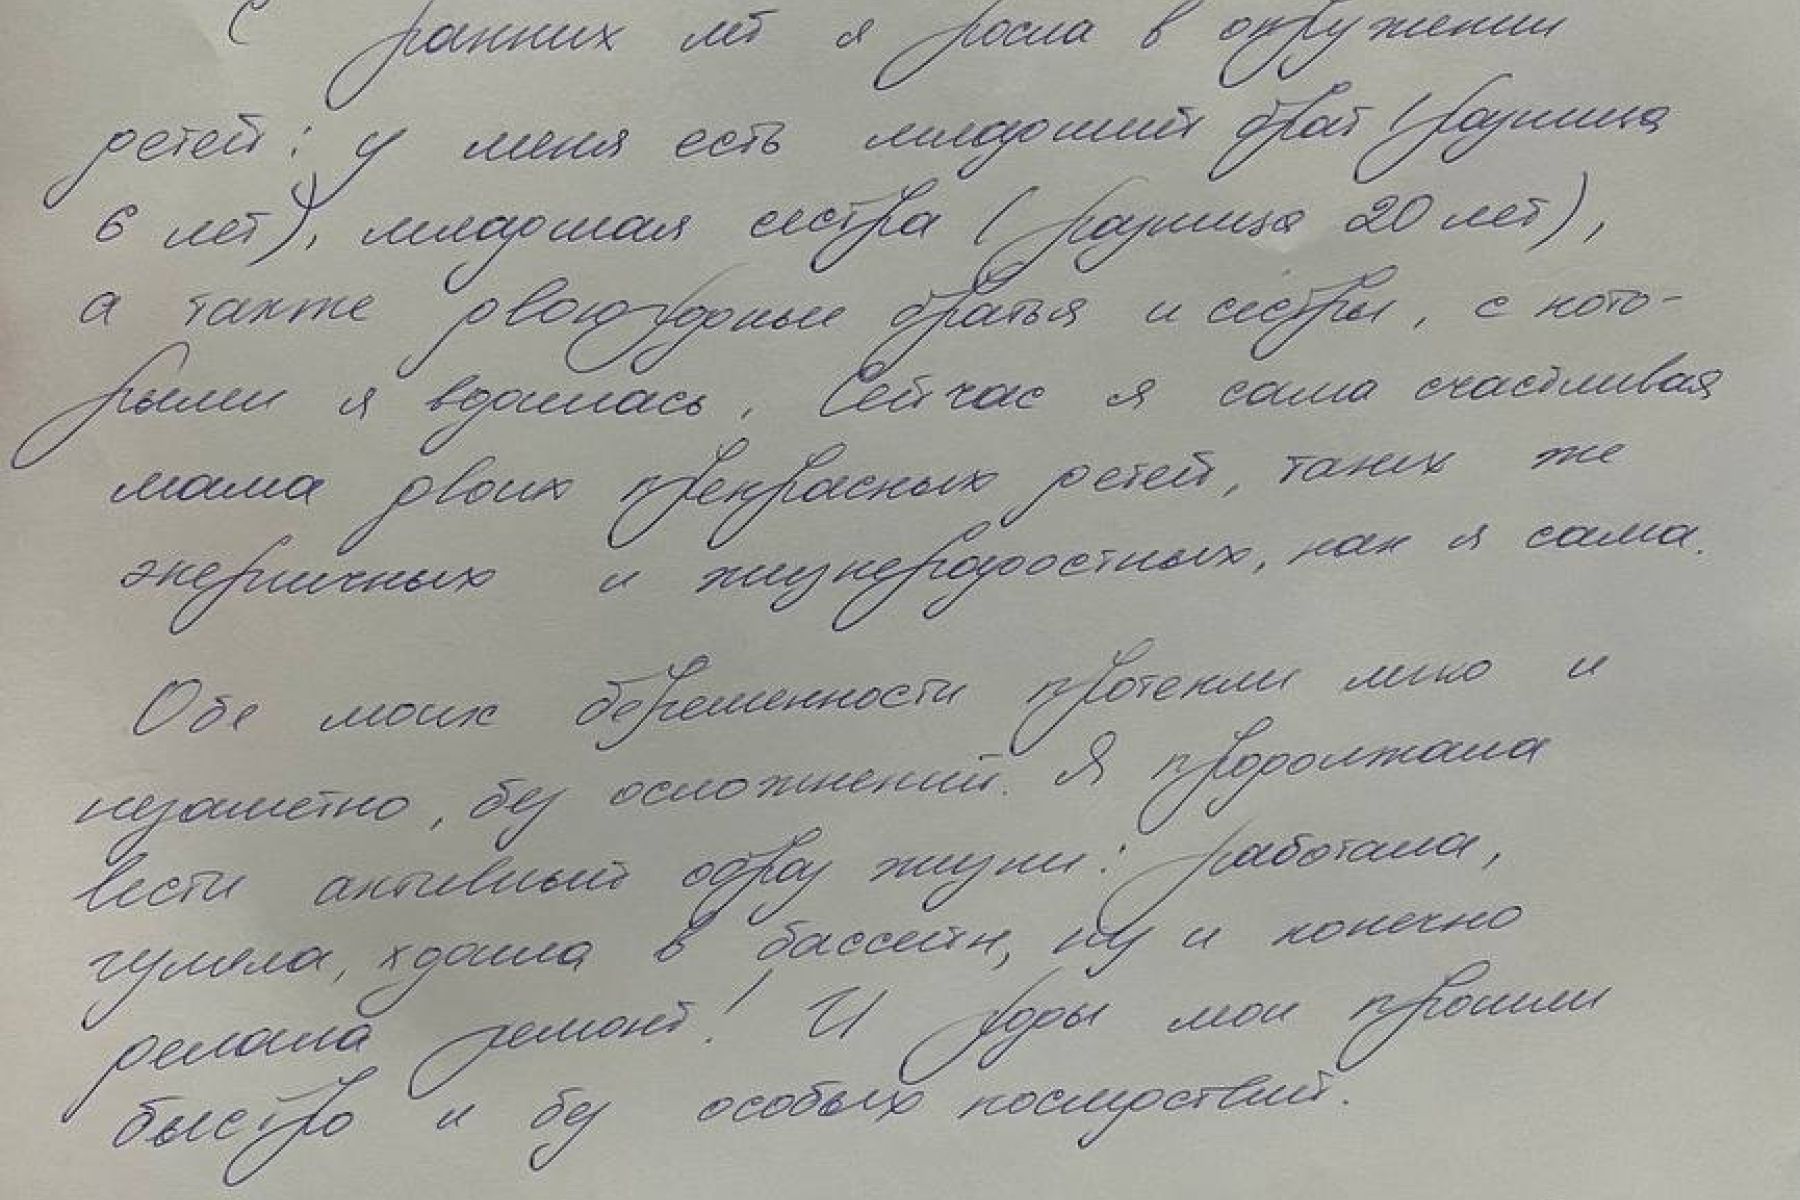 С ранних лет я росла в окружении
детей: у меня есть младший брат (разница
6 лет), младшая сестра (разница 20 лет),
а также двоюродные братья и сестры, с кото-
рыми я вдоилась. Сейчас я сама счастливая
мама двоих прекрасных детей, таких же
энергичных и жизнерадостных, как я сама.
Обе моих беременности протекли легко и
незаметно, без осложнений. Я продолжала
вести активный образ жизни: работала,
гуляла, ходила в бассейн, ну и конечно
делала ремонт! И роды мои прошли
быстро и без особых последствий.